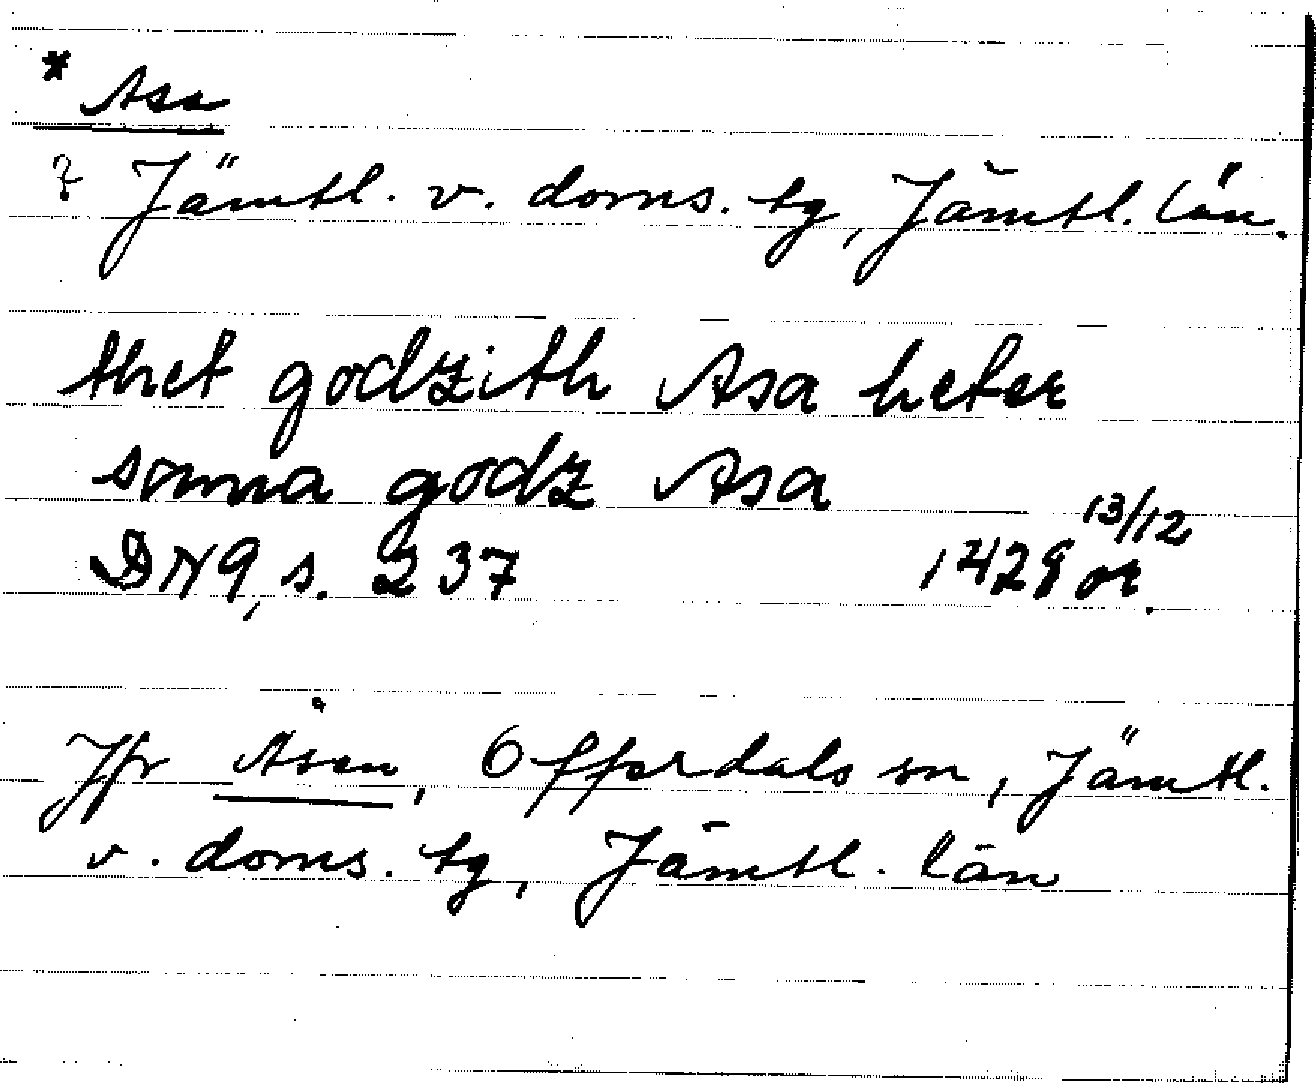 * Asa
? Jämtl. v. doms. tg, Jämtl. län.
thet godzith Asa heter
somma godz Asa
DN 9, s. 237 1428 13/12 or.
Jfr Åsen, Offerdals sn, Jämtl.
v. doms. tg, Jämtl. län